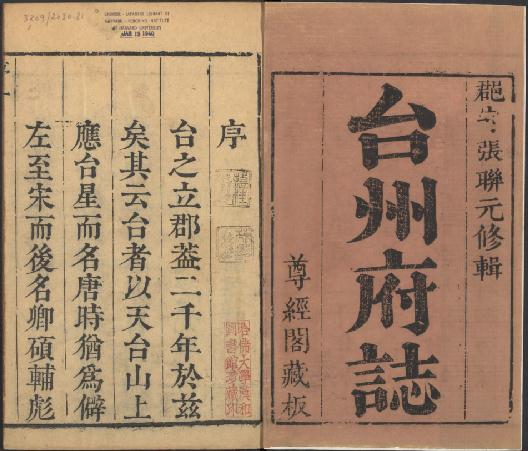 郡守張聯元修輯
台州府誌
尊經閣藏板
序
台之立郡蓋二千年於兹
矣其云台者以天台山上
應台星而名唐時猶為僻
左至宋而後名卿碩輔彪
哈佛大學漢和
圖書館珍藏印
3209/2030.81
CHINESE - JAPANESE LIBRARY OF
HARVARD - YENCHING INSTITUTE
AT HARVARD UNIVERSITY
MAR 13 1940